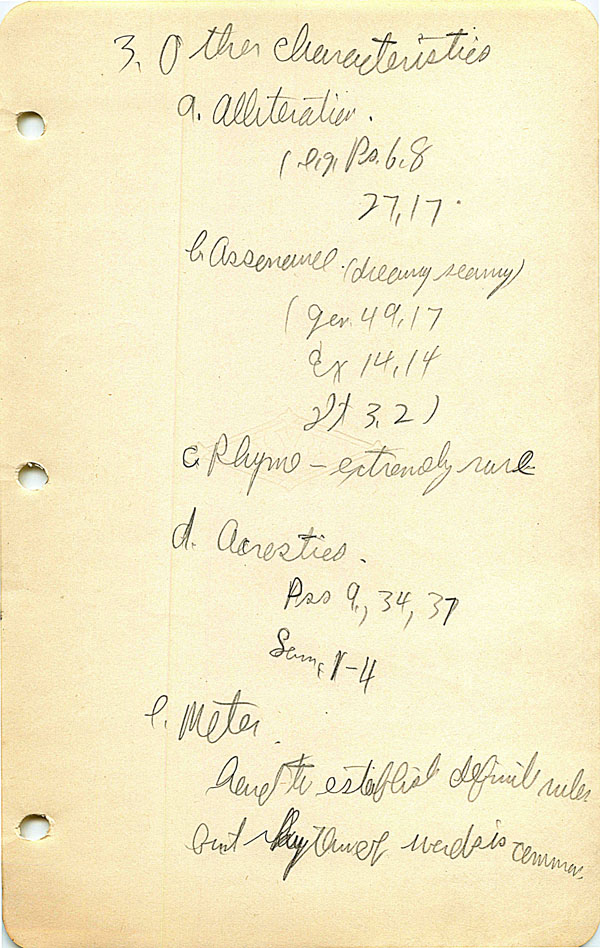 3. Other characteristics
a. Alliteration.
(e.g. Ps. 6, 8
27, 17
b. Assonance. (dreamy seamy)
(Gen 49, 17
Ex 14, 14
Dt 3, 2)
c. Rhyme – extremely rare
d. Acrostics.
Pss 9, 34, 37
1-4
e. Meter.
Hard to establish definite rules
but rhythm of words is common.